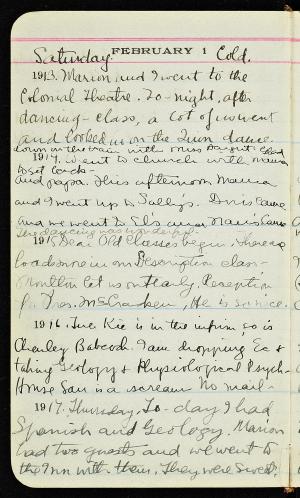 FEBRUARY 1
Saturday. Cold.
1913. Marion and I went to the
Colonial Theatre. To-night, after
dancing-class, a lot of us went
and looked in on the Gym dance.
down in the train with Miss
1914. Went to church with mama
and papa. This afternoon Mama
and I went up to Sally's. Doris came
and we went to El's and
The dancing was wonderful.
1915 Dear Old Classes begin.
loads more in our Description class-
Moulton let us out early. Reception
for Pres. McCracken, He is so nice.
1916. Tue. Kie is in the infirm so is
Chesley Babcock. I am dropping Ec &
taking Geology & Physiological Psych-
House Son is a scream No mail-
1917. Thursday. To-day I had
Spanish and Geology. Marion
had two guests and we went to
the Inn with them. They were sweet.